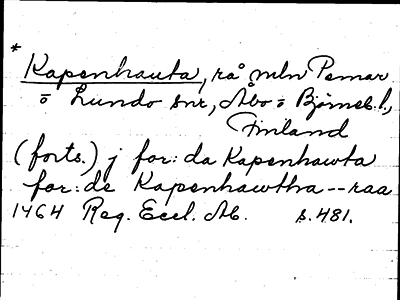 *
Kapenhauta, rå mln Pemar
o Lundo snr, Åbo o Björneb. l.,
Finland
(forts.) j for: da Kapenhawta
for: de Kapenhawtha -- raa
1464 Reg. Eccl. Ab. s. 481.